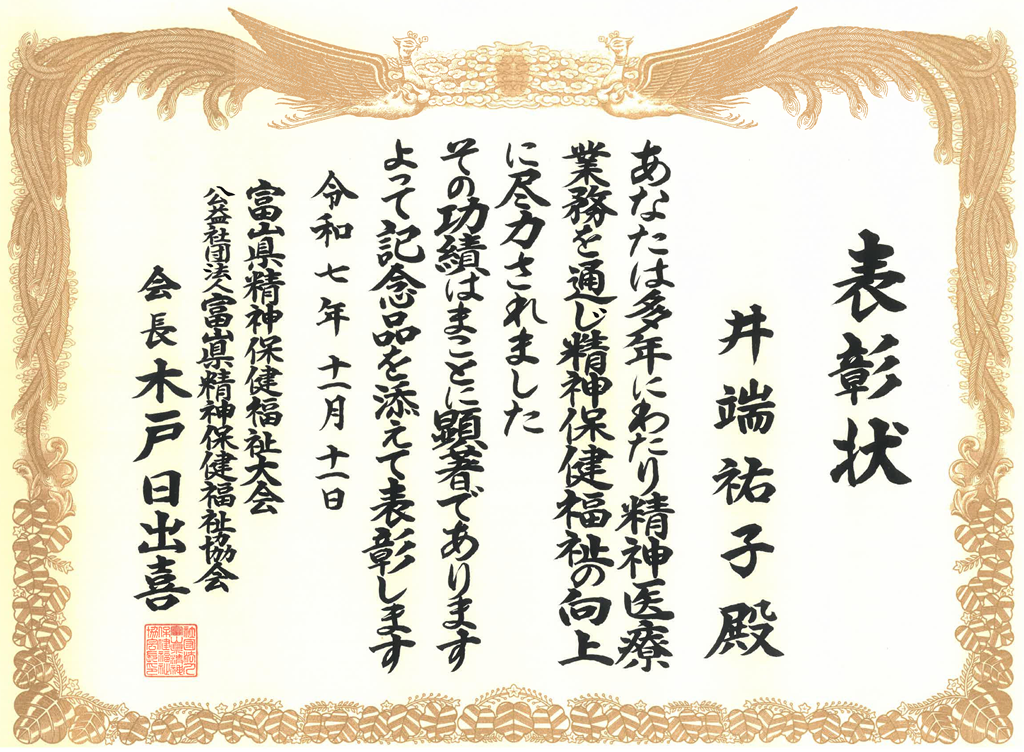 表彰状
井端祐子殿
あなたは多年にわたり精神医療
業務を通じ精神保健福祉の向上
に尽力されました
その功績はまことに顕著であります
よって記念品を添えて表彰します
令和七年十一月十一日
富山県精神保健福祉大会
公益社団法人富山県精神保健福祉協会
会長木戸日出喜